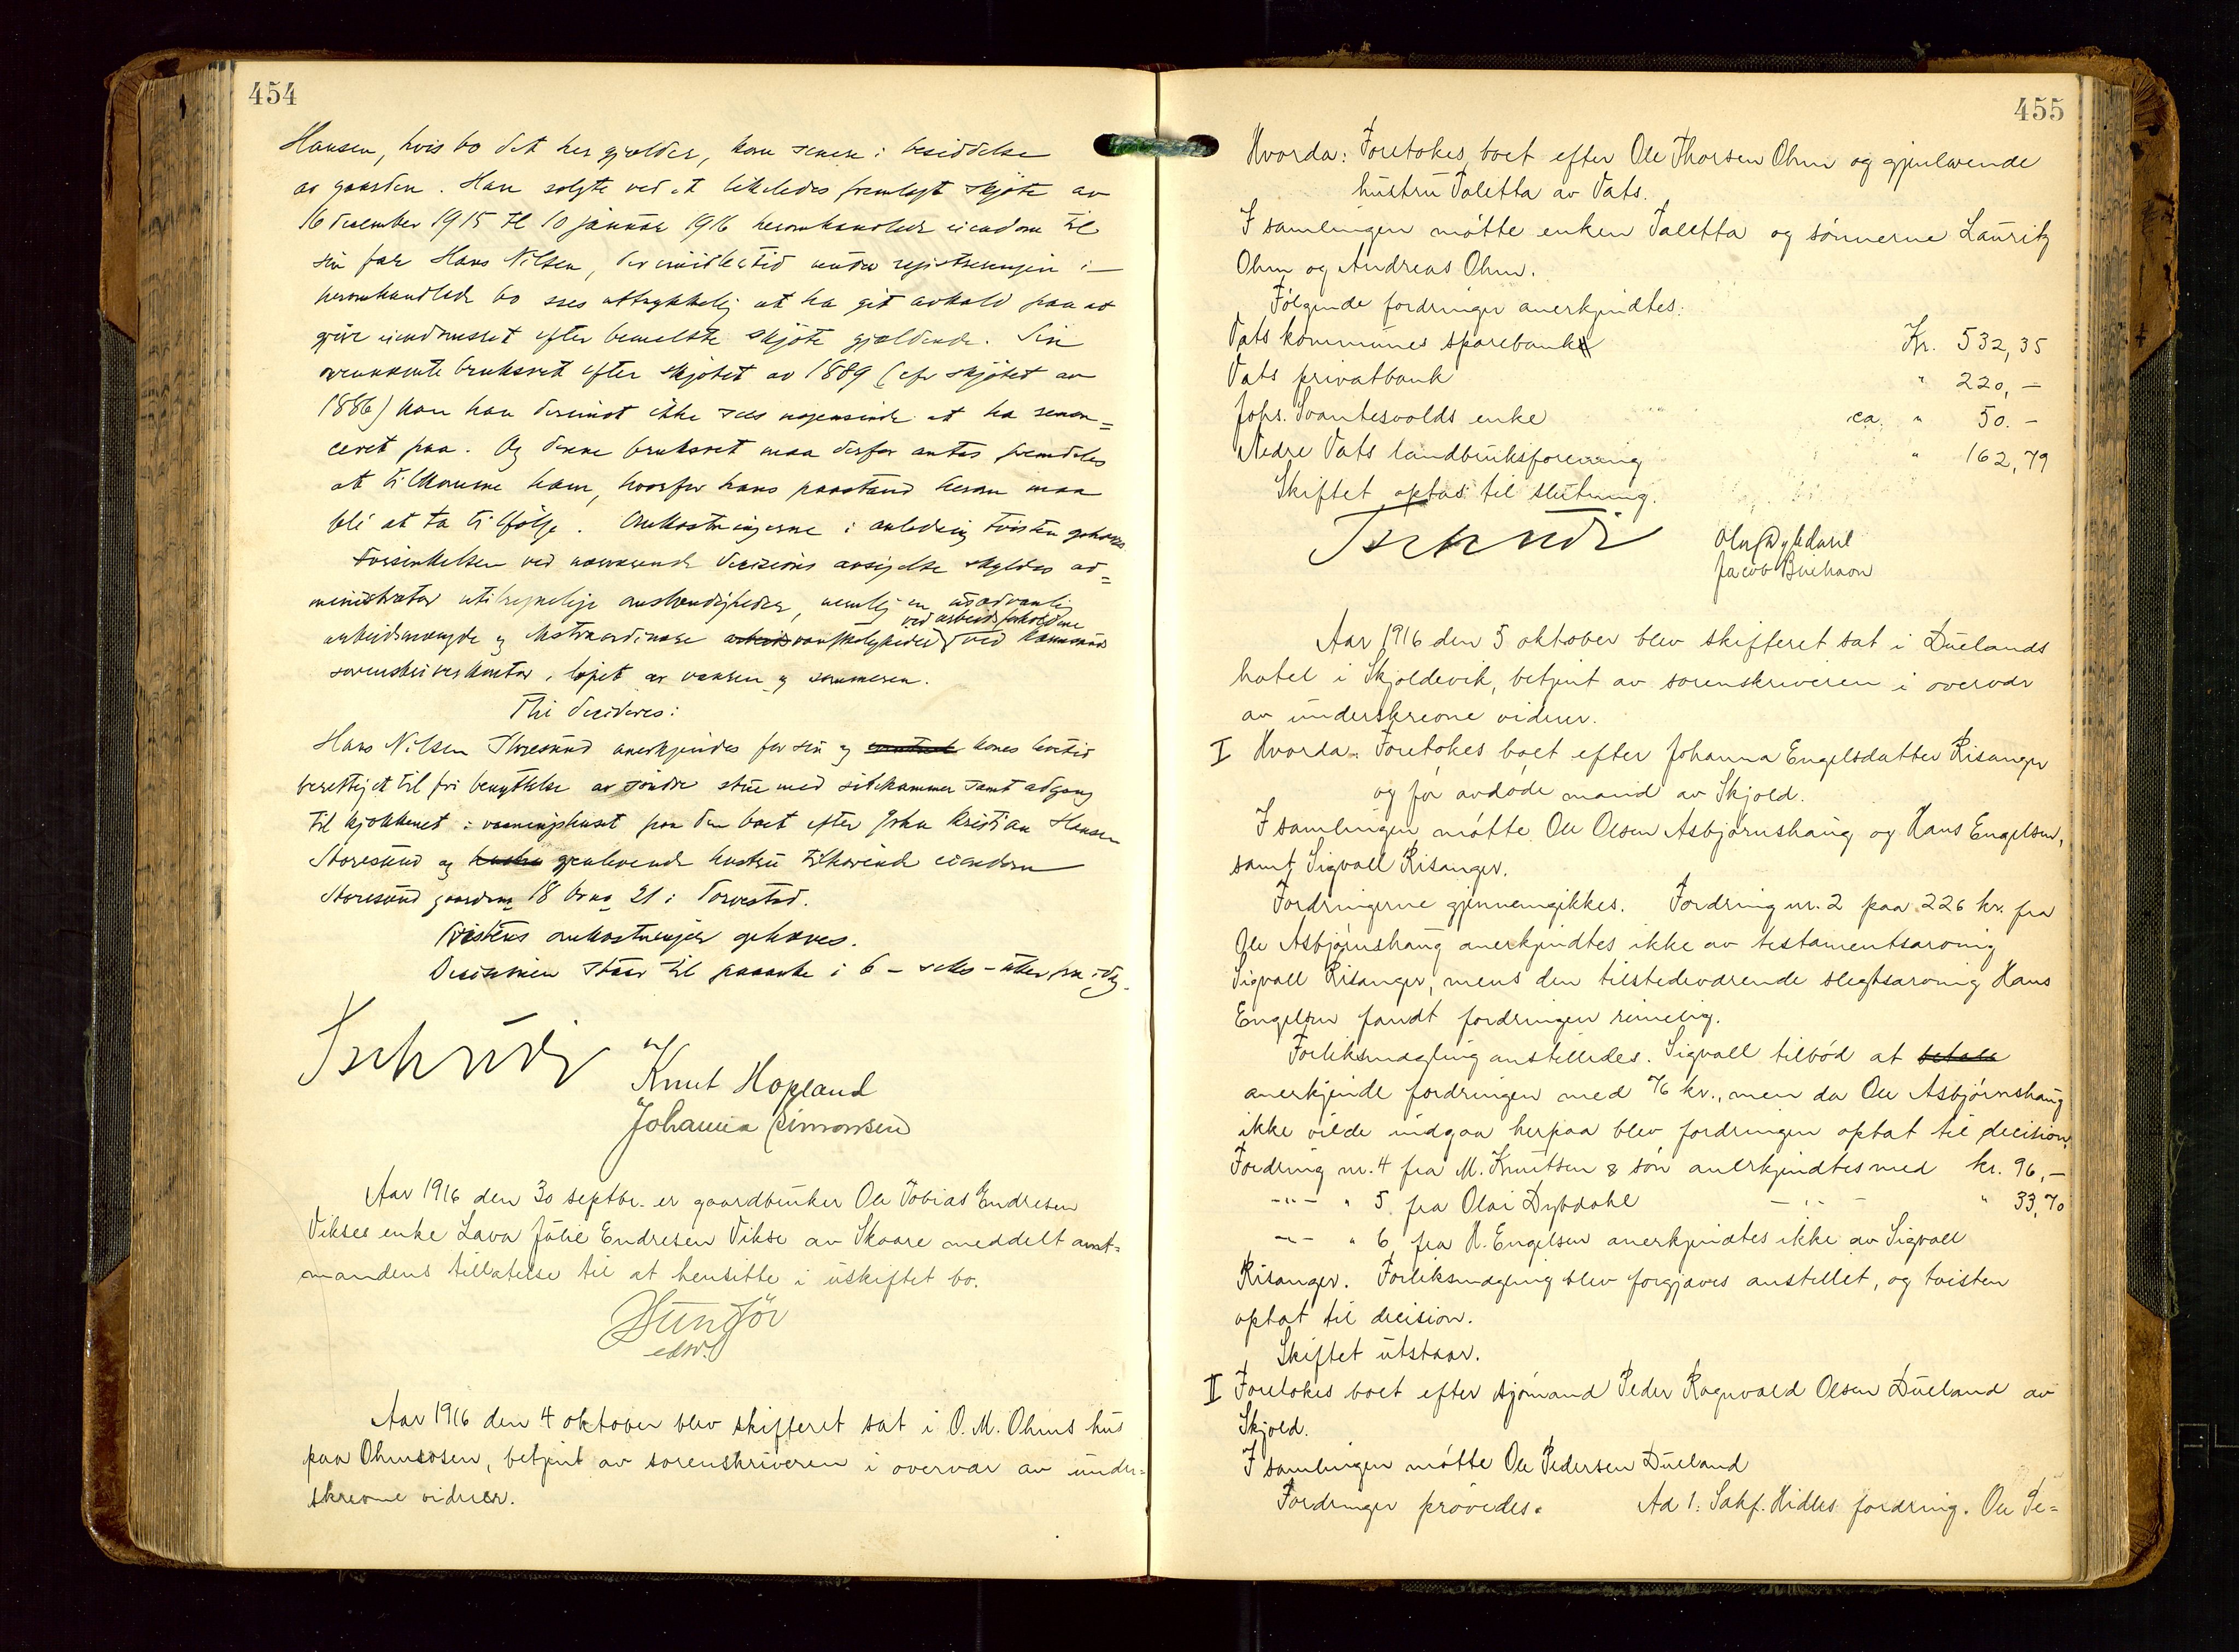 454
Hansen, hvis bo det her gjælder, kom senere i besiddelse
av gaarden. Han solgte ved et likeledes fremlagt skjøte av
16 december 1915 tl 10 januar 1916 heromhandlede eiendom til
sin far Hans Nilsen, der imidlertid under registreringen i
heromhandlede bo sees uttrykkelig at ha git avkald paa at
gjøre eiendomsret efter bemeldte skjøte gjældende. Sin
ovennævnte bruksret efter skjøtet av 1889 (cfr skjøtet av
1886) kan han derimot ikke sees nogensinde at ha renon=
ceret paa. Og denne bruksret maa derfor antas fremdeles
at tilkomme ham, hvorfor hans paastand herom maa
bli at ta til følge. Omkostningerne i anledning tvisten ophæves.
Forsinkelsen ved nærværende decisions avsigelse skyldes ad=
ministrator utilregnelige omstændigheder, nemlig en usædvanlig
arbeidsmængde og ekstraordinære vanskeligheder ved arbeidsforholdene ved Karmsunds
sorenskriverkontor i løpet av vaaren og sommeren.
Thi decideres:
Hans Nilsen Storesund anerkjendes for sin og kones levetid
berettiget til fri benyttelse av søndre stue med sidekammer samt adgang
til kjøkkenet i vaaningshuset paa den boet efter John Kristian Hansen
Storesund og gjenlevende hustru tilhørende eiendom
Storesund gaardsno 18 brno 21 i Torvestad.
Tvistens omkostninger ophæves.
Decisionen staar til paaanke i 6 – seks – uker fra idag.
Tschudi
Knut Hopland
Johannia Simonsen
Aar 1916 den 30 septbr. er gaardbruker Ole Tobias Endresen
Vikses enke Lava Julie Endresen Vikse av Skaare meddelt amt=
mandens tillatelse til at hensitte i uskiftet bo.
edsv.
Aar 1916 den 4 oktober blev skifteret sat i O. M. Ohms hus
paa Ohmsosen, betjent av sorenskriveren i overvær av under=
skrevne vidner.
455
Hvorda: Foretokes boet efter Ole Thorsen Ohm og gjenlevende
hustru Taletta av Vats.
I samlingen møtte enken Taletta og sønnerne Lauritz
Ohm og Andreas Ohm.
Følgende fordringer anerkjendtes:
Vats kommunes sparebank Kr. 532,35
Vats privatbank " 220,—
Johs. Svantesvolds enke ca. " 50.—
Nedre Vats landbruksforening " 162,79
Skiftet optas til slutning.
Tschudi
Jacob
Aar 1916 den 5 oktober blev skifteret sat i Duelands
hotel i Skjoldevik, betjent av sorenskriveren i overvær
av underskrevne vidner.
I Hvorda: Foretokes boet efter Johanna Engelsdatter Risanger
og før avdøde mand av Skjold.
I samlingen møtte Ole Olsen Asbjørnshaug og Hans Engelsen,
samt Sigvall Risanger.
Fordringerne gjennemgikkes. Fordring nr. 2 paa 226 kr. fra
Ole Asbjørnshaug anerkjendtes ikke av testamentsarving
Sigvall Risanger, mens den tilstedeværende slegtsarving Hans
Engelsen fandt fordringen rimelig.
Forliksmægling anstilledes. Sigvall tilbød at betale
anerkjende fordringen med 76 kr., men da Ole Asbjørnshaug
ikke vilde indgaa herpaa blev fordringen optat til decision.
Fordring nr. 4 fra M. Knutsen & søn anerkjendtes med kr. 96,—
—"— " 5 fra Olai Dybdahl —"— " 33,70
—"— " 6 fra H. Engelsen anerkjendtes ikke av Sigvall
Risanger. Forliksmægling blev forgjæves anstillet, og tvisten
optat til decision.
Skiftet utstaar.
II Foretokes boet efter sjømand Peder Ragnvald Olsen Dueland av
Skjold.
I samlingen møtte Ole Pedersen Dueland
Fordringer prøvedes. Ad 1: Sakf. Hidles fordring. Ole Pe=